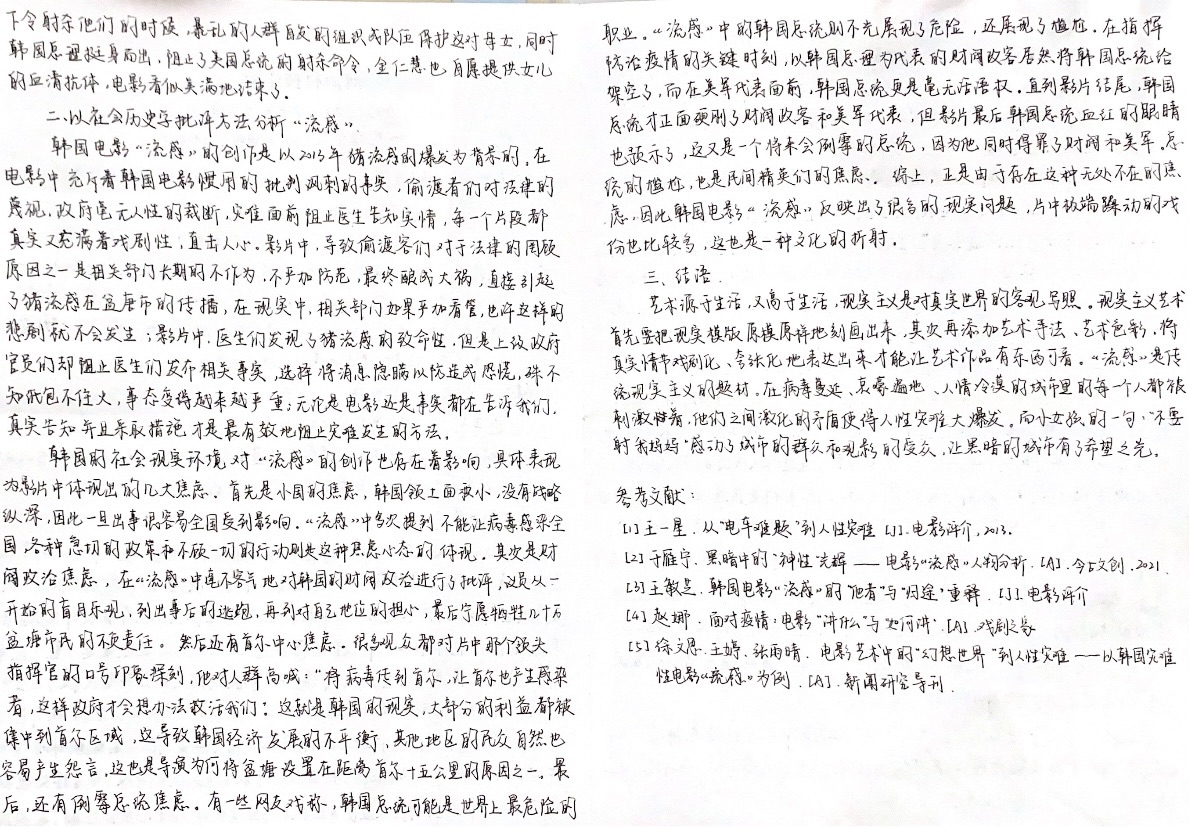 下令射杀他们的时候，暴乱的人群自发的组织成队伍保护这对母女，同时
韩国总理挺身而出，阻止了美国总统的射杀命令，金仁慧也自愿提供女儿
的血清抗体，电影看似美满地结束了。
二、以社会历史学批评方法分析“流感”
韩国电影“流感”的创作是以2013年猪流感的爆发为背景的，在
电影中充斥着韩国电影惯用的批判讽刺的事实，偷渡者们对法律的
蔑视，政府毫无人性的裁断，灾难面前阻止医生告知实情，每一个片段都
真实又充满着戏剧性，直击人心。影片中，导致偷渡客们对于法律的罔顾
原因之一是相关部门长期的不作为，不严加防范，最终酿成大祸，直接引起
了猪流感在盆唐市的传播，在现实中，相关部门如果严加看管，也许这样的
悲剧就不会发生；影片中，医生们发现了猪流感的致命性，但是上级政府
官员们却阻止医生们发布相关事实，选择将消息隐瞒以防造成恐慌，殊不
知纸包不住火，事态变得越来越严重；无论是电影还是事实都在告诉我们，
真实告知并且采取措施才是最有效地阻止灾难发生的方法。
韩国的社会现实环境对“流感”的创作也存在着影响，具体表现
为影片中体现出的几大焦虑。首先是小国的焦虑，韩国领土面积小，没有战略
纵深，因此一旦出事很容易全国受到影响。“流感”中多次提到不能让病毒感染全
国，各种急切的政策和不顾一切的行动则是这种焦虑心态的体现。其次是财
阀政治焦虑，在“流感”中毫不客气地对韩国的财阀政治进行了批评，议员从一
开始的盲目乐观，到出事后的逃跑，再到对自己地位的担心，最后宁愿牺牲几十万
盆塘市民的不负责任。然后还有首尔中心焦虑。很多观众都对片中那个领头
指挥官的口号印象深刻，他对人群高喊：“将病毒传到首尔，让首尔也产生感染
者，这样政府才会想办法救活我们！这就是韩国的现实，大部分的利益都被
集中到首尔区域，这导致韩国经济发展的不平衡，其他地区的民众自然也
容易产生怨言，这也是导演为何将盆塘设置在距离首尔十五公里的原因之一。最
后，还有倒霉总统焦虑。有一些网友戏称，韩国总统可能是世界上最危险的
职业。“流感”中的韩国总统则不光展现了危险，还展现了尴尬。在指挥
防治疫情的关键时刻，以韩国总理为代表的财阀政客居然将韩国总统给
架空了，而在美军代表面前，韩国总统更是毫无话语权。直到影片结尾，韩国
总统才正面硬刚了财阀政客和美军代表，但影片最后韩国总统血红的眼睛
也预示了，这又是一个将来会倒霉的总统，因为他同时得罪了财阀和美军，总
统的尴尬，也是民间精英们的焦虑。综上，正是由于存在这种无处不在的焦
虑，因此韩国电影“流感”反映出了很多的现实问题，片中极端躁动的戏
份也比较多，这也是一种文化的折射。
三、结语.
艺术源于生活，又高于生活，现实主义是对真实世界的客观写照。现实主义艺术
首先要把现实模版原模原样地刻画出来，其次再添加艺术手法、艺术色彩，将
真实情节戏剧化、夸张化地表达出来才能让艺术作品有东西可看。“流感”是传
统现实主义的题材。在病毒蔓延、哀嚎遍地、人情冷漠的城市里的每一个人都被
刺激着，他们之间激化的矛盾使得人性灾难大爆发。而小女孩的一句，“不要
射我妈妈”感动了城市的群众和观影的受众，让黑暗的城市有了希望之光。
参考文献：
[1]王一星.从“电车难题”到人性灾难[J].电影评介，2013.
[2]于雁宁.黑暗中的“神性”光辉——电影“流感”人物分析.[A].今古文创.2021.
[3]王敏芝.韩国电影“流感”的“他者”与“归途”重释.[J].电影评介
[4]赵娜.面对疫情：电影“讲什么”与“如何讲”.[A].戏剧之家
[5]徐文恩.王婷.张雨晴.电影艺术中的“幻想世界”到人性灾难——以韩国灾难
性电影“流感”为例.[A].新闻研究导刊.